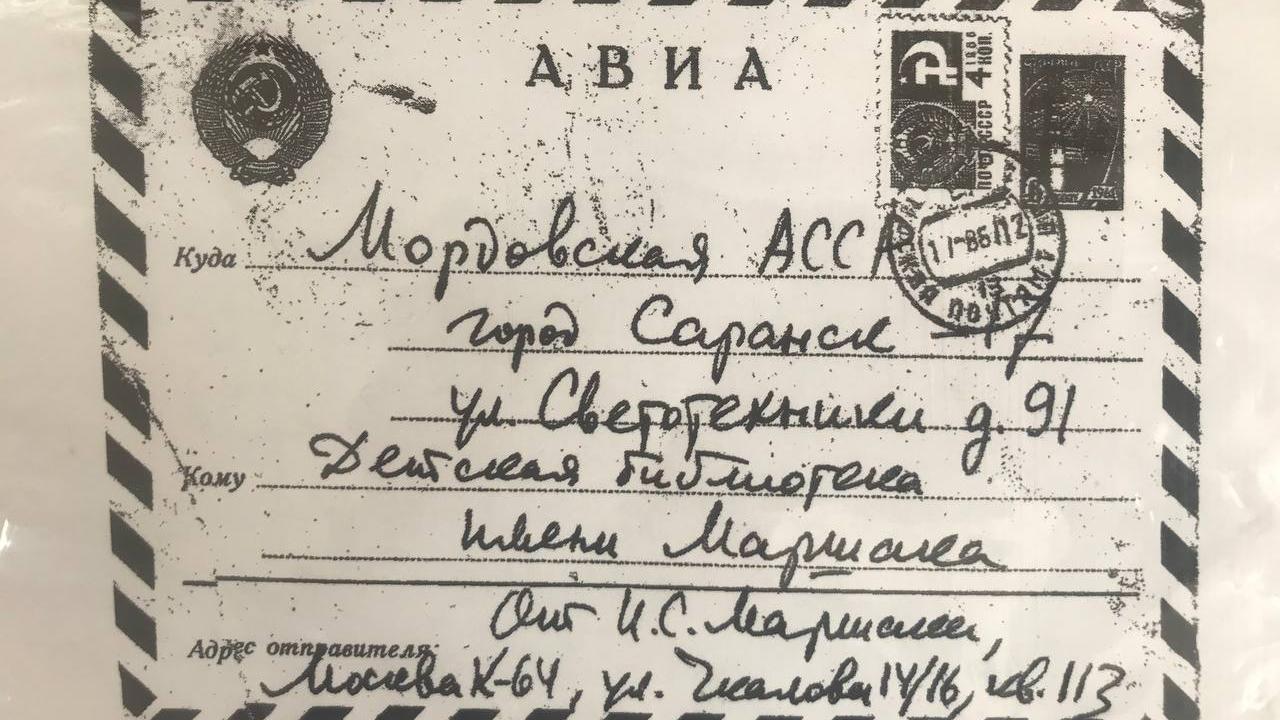 АВИА
4 КОП.
ПОЧТА СССР
Куда Мордовская АССР
город Саранск -17
ул. Светотехники д. 91
Кому Детская библиотека
имени Маршака
От И.С. Маршака,
Адрес отправителя:
Москва К-64, ул. Чкалова 14/16, кв. 113